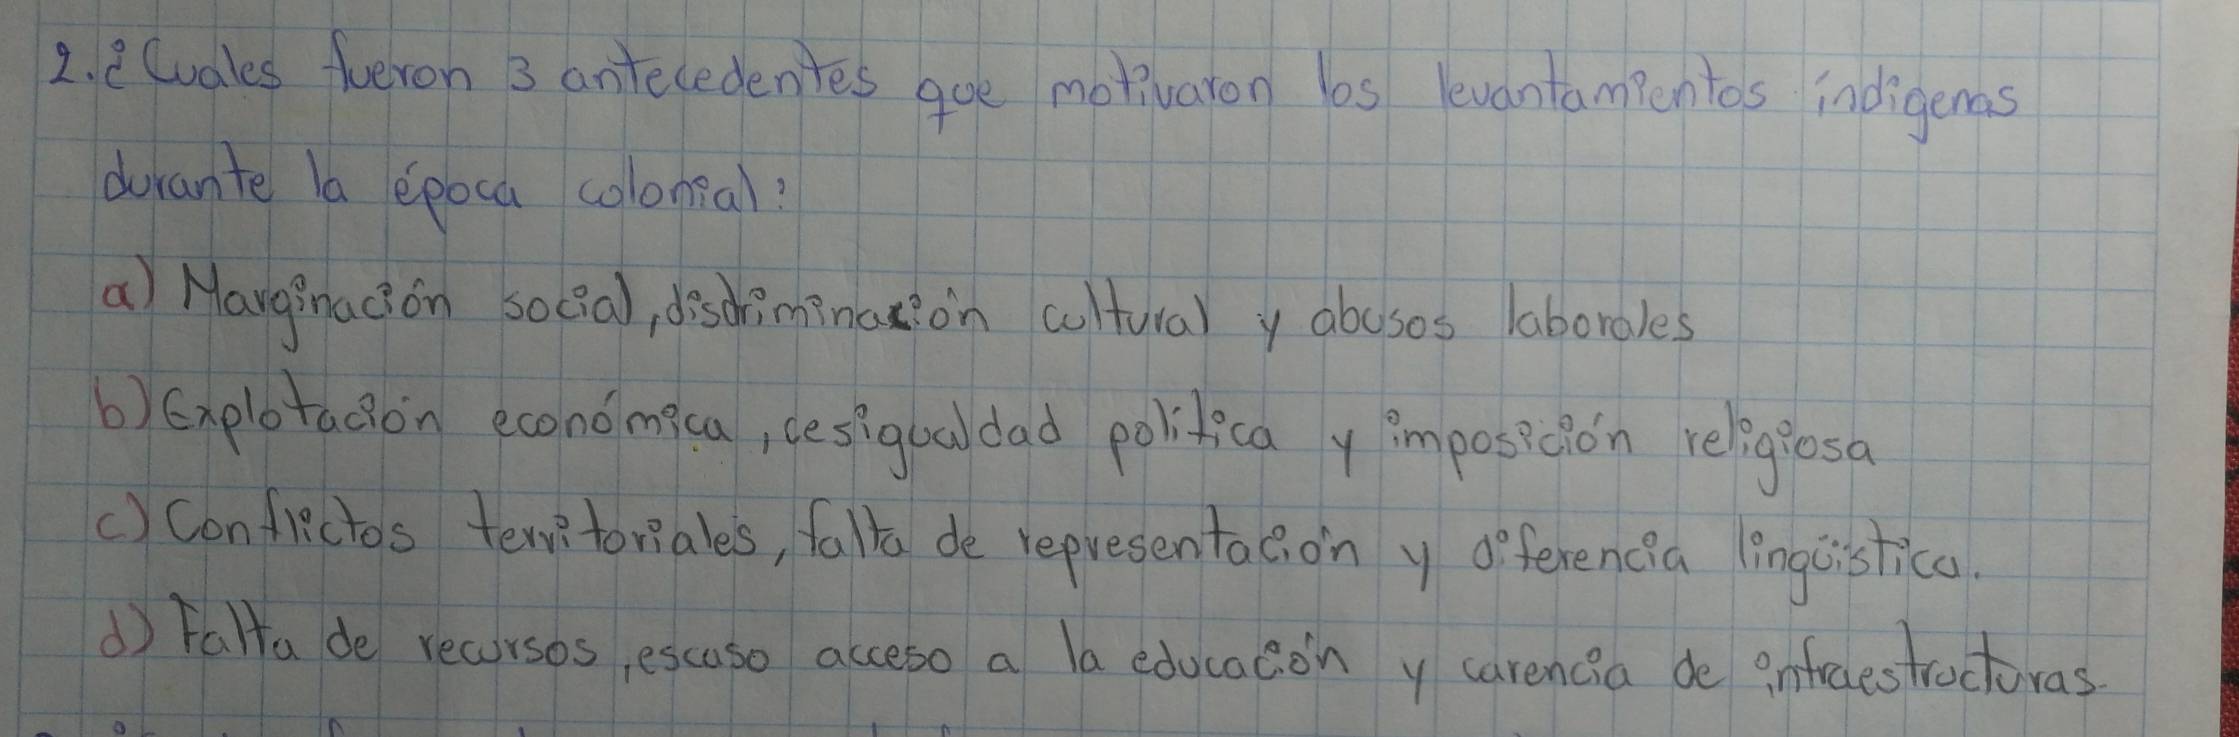 2. ¿Cuales fueron 3 antecedentes que motivaron los levantamientos indigenas
durante la época colonial?
a) Marginación social, discriminación cultural y abusos laborales
b) Explotación económica, desigualdad politica y imposición religiosa
c) Conflictos territoriales, falta de representación y diferencia lingüistica.
d) Falta de recursos, escaso acceso a la educación y carencia de infraestructuras.